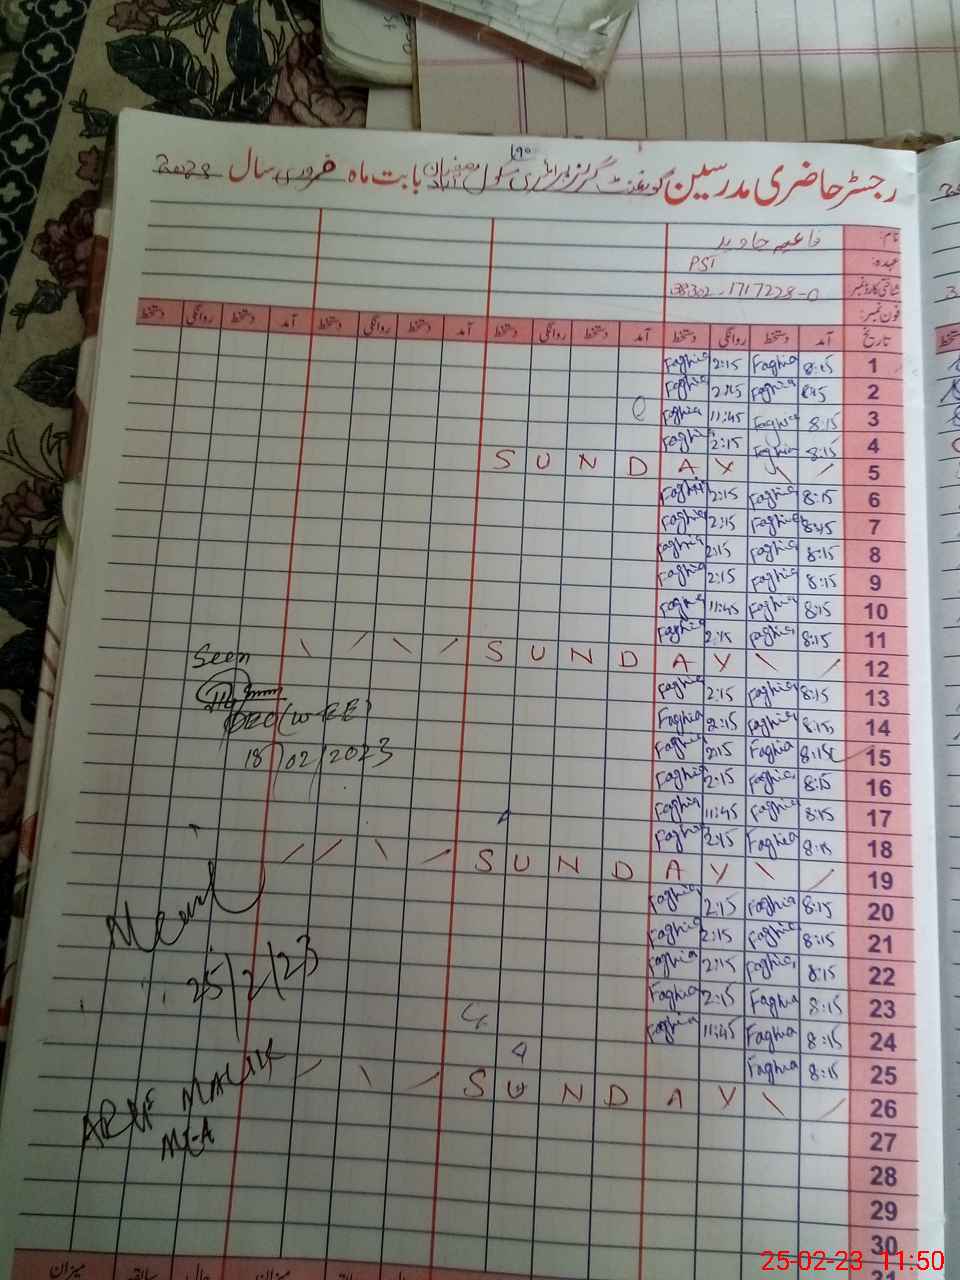 رجسٹر حاضری مدرسین گورنمنٹ گرلز پرائمری سکول بابت ماہ فروری سال 2023
نام:
عہدہ: PST
شناختی کارڈ نمبر 38302-1717228-0
فون نمبر:
تاریخ آمد دستخط روانگی دستخط آمد دستخط روانگی دستخط آمد دستخط روانگی دستخط آمد دستخط روانگی دستخط
1 8:15 Faghia 2:15 Faghia
2 8:15 Faghia 2:15 Faghia
3 8:15 Faghia 11:45 Faghia
4 8:15 Faghia 2:15 Faghia
5 SUNDAY
6 8:15 Faghia 2:15 Faghia
7 8:15 Faghia 2:15 Faghia
8 8:15 Faghia 2:15 Faghia
9 8:15 Faghia 2:15 Faghia
10 8:15 Faghia 11:45 Faghia
11 8:15 Faghia 2:15 Faghia
12 SUNDAY
Seen
13 8:15 Faghia 2:15 Faghia
14 8:15 Faghia 2:15 Faghia
15 8:15 Faghia 2:15 Faghia
18/02/2023
16 8:15 Faghia 2:15 Faghia
17 8:15 Faghia 11:45 Faghia
18 8:15 Faghia 2:15 Faghia
19 SUNDAY
20 8:15 Faghia 2:15 Faghia
21 8:15 Faghia 2:15 Faghia
22 8:15 Faghia 2:15 Faghia
25/2/23
23 8:15 Faghia 2:15 Faghia
24 8:15 Faghia 11:45 Faghia
25 8:15 Faghia
26 SUNDAY
ARIF MALIK
MEA
27
28
29
30
31
میزان میزان
25-02-23 11:50